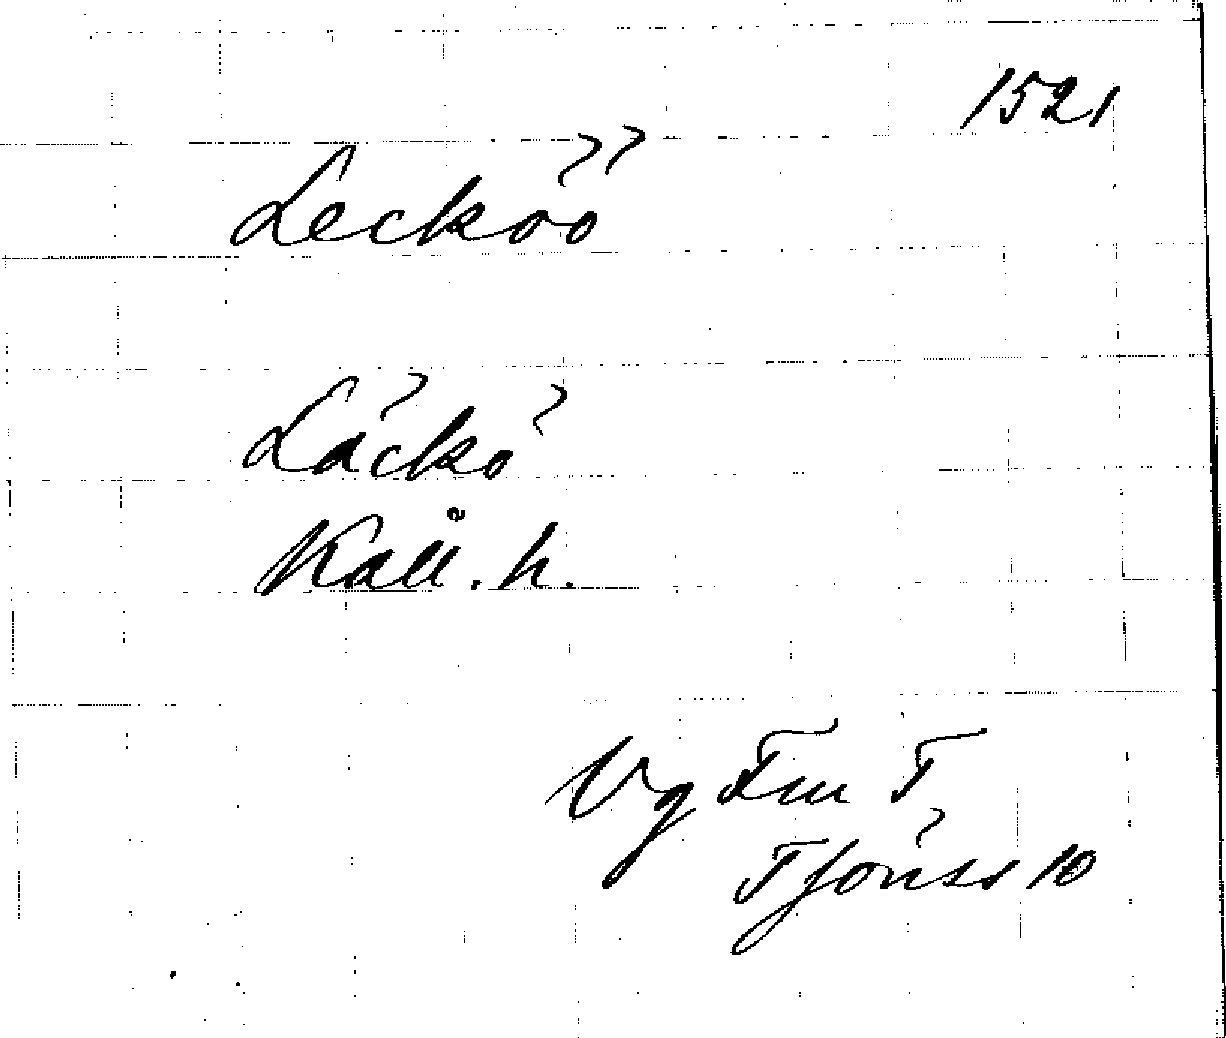 1521
Lecköö
Läckö
Kåll. h.
Vg Fm T
Tjönss 10